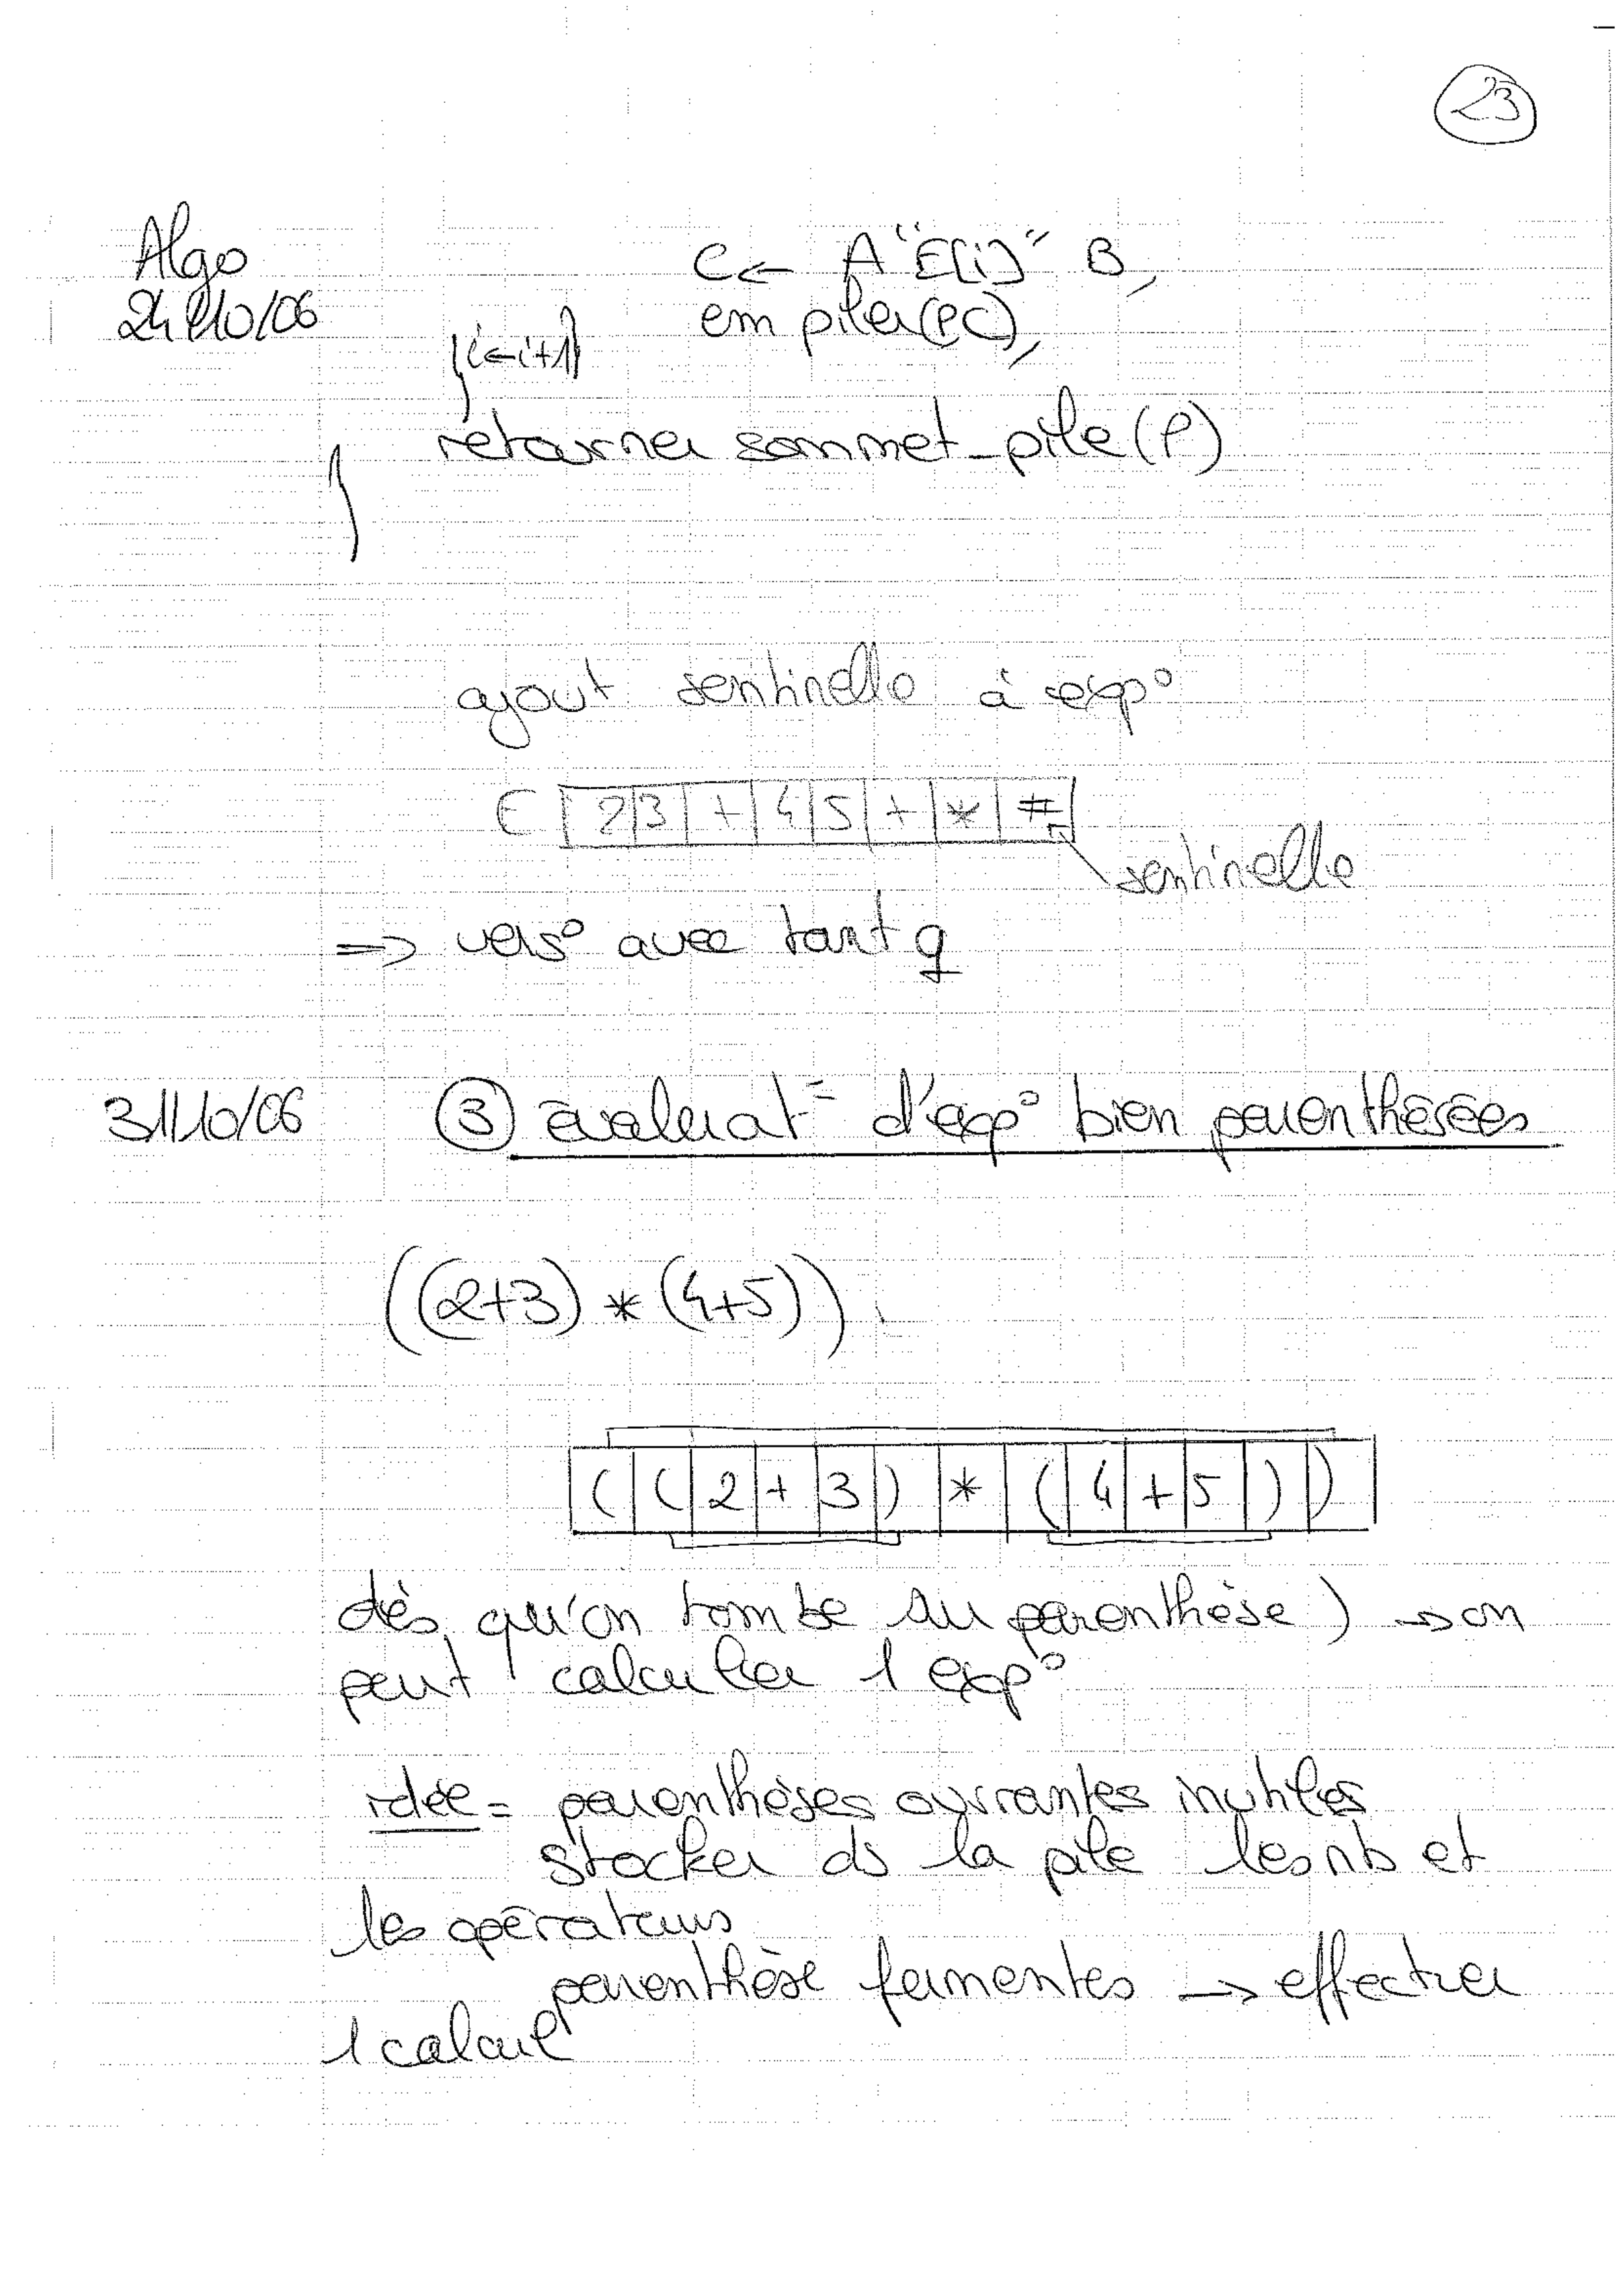 23
Algo
24/10/06
C ← A "E[i]" B;
empiler(PC);
i←i+1
retourner sommet_pile(P)
ajout sentinelle à exp°
E | 2 | 3 | + | 4 | 5 | + | * | # |
sentinelle
=> vers° avec tant q
31/10/06 ③ évaluat° d'exp° bien parenthésées
((2+3) * (4+5))
| ( | ( | 2 | + | 3 | ) | * | ( | 4 | + | 5 | ) | ) |
dès qu'on tombe su parenthèse ) → on
peut calculer 1 exp°
idée = parenthèses ouvrantes inutiles
stocker ds la pile les nb et
les opérateurs
parenthèse fermantes → effectuer
1 calcul